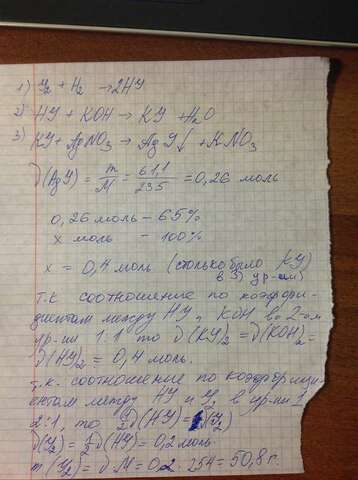 1) J₂ + H₂ → 2HJ
2) HJ + KOH → KJ + H₂O
3) KJ + AgNO₃ → AgJ↓ + KNO₃
ν(AgJ) = m/M = 61,1/235 = 0,26 моль
0,26 моль – 65%
x моль – 100%
x = 0,4 моль (столько было KJ
в 3) ур-ии)
т.к соотношение по коэффи-
циентам между HJ и KOH во 2-ом
ур-ии 1:1 то ν(KJ)₂ = ν(KOH)₂ =
ν(HJ)₂ = 0,4 моль.
т.к. соотношение по коэффици-
ентам между HJ и J₂ в ур-ии 1
2:1, то ½ν(HJ) = ν(J₂)
ν(J₂) = ½ν(HJ) = 0,2 моль
m(J₂) = ν·M = 0,2 · 254 = 50,8 г.